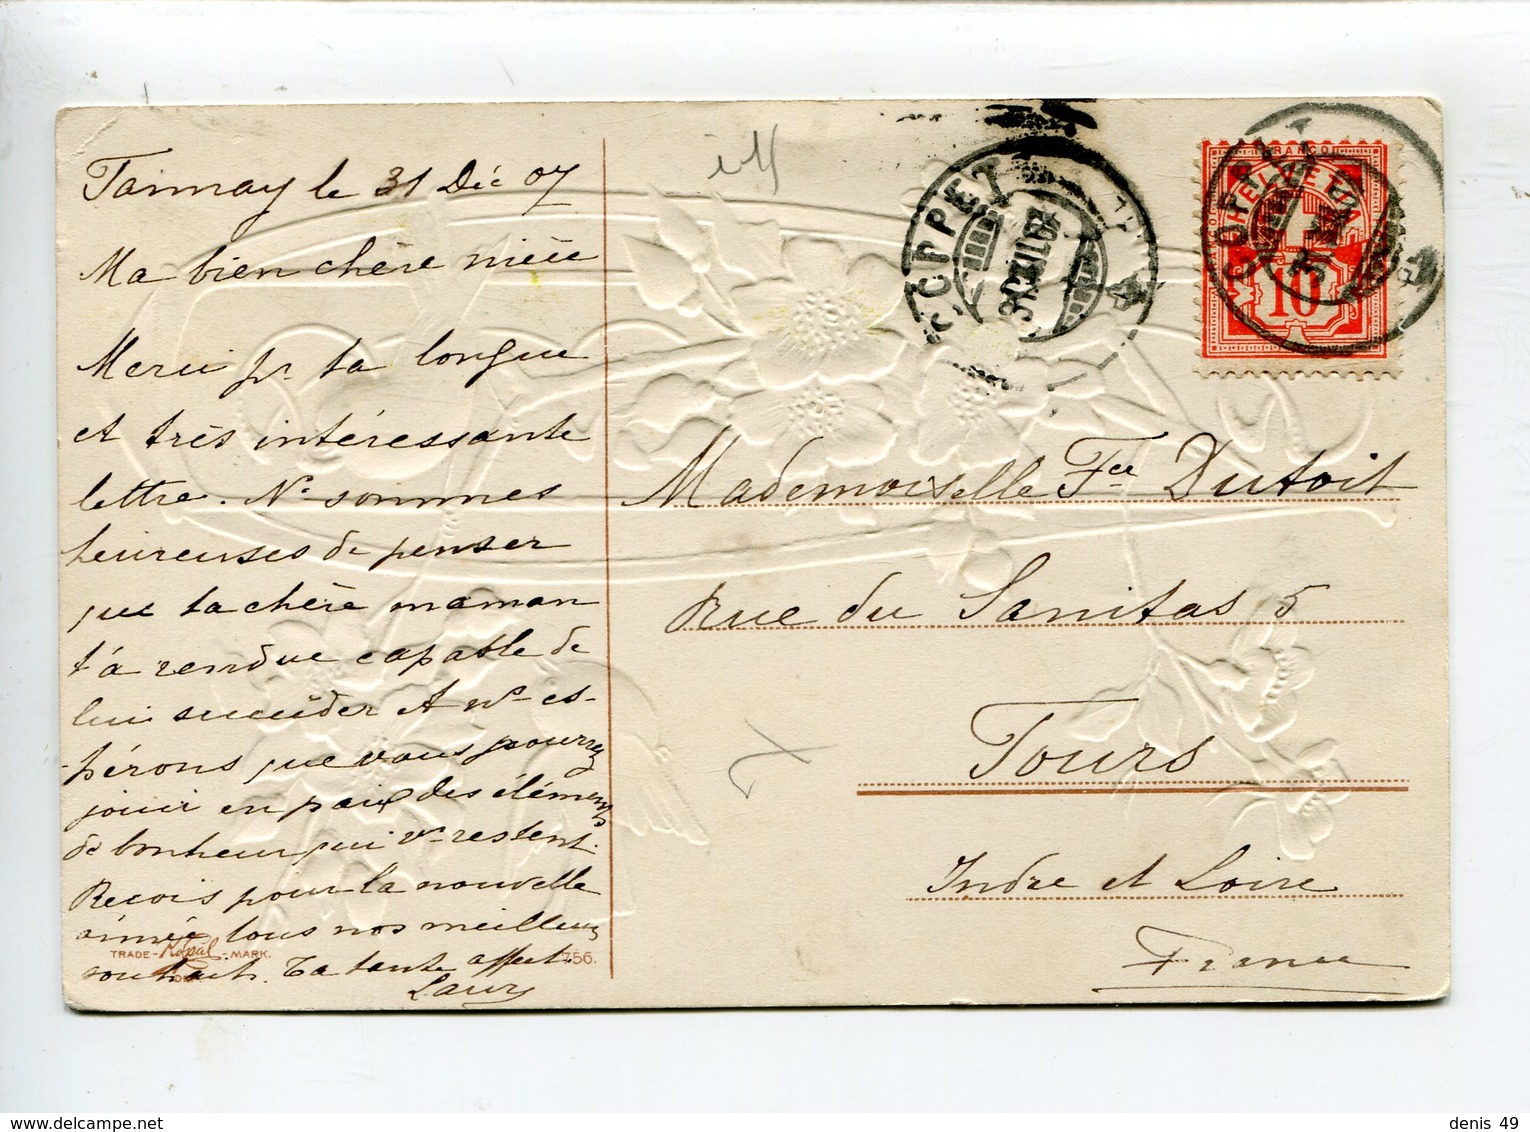 Tannay le 31 Déc 07
Ma bien chère nièce
Merci pr ta longue
et très intéressante
lettre. Ns sommes
heureuses de penser
que ta chère maman
t'a rendue capable de
lui succéder et ns es-
pérons que vous pourrez
jouir en paix des éléments
de bonheur qui vs restent.
Reçois pour la nouvelle
année tous nos meilleurs
souhaits. Ta tante affect.
Laure
TRADE - Kopal - MARK.
756.
COPPET
FRANCO
HELVETIA
10
COPPET
Mademoiselle Fce Dutoit
Rue du Sanitas 5
Tours
Indre et Loire
France
denis 49